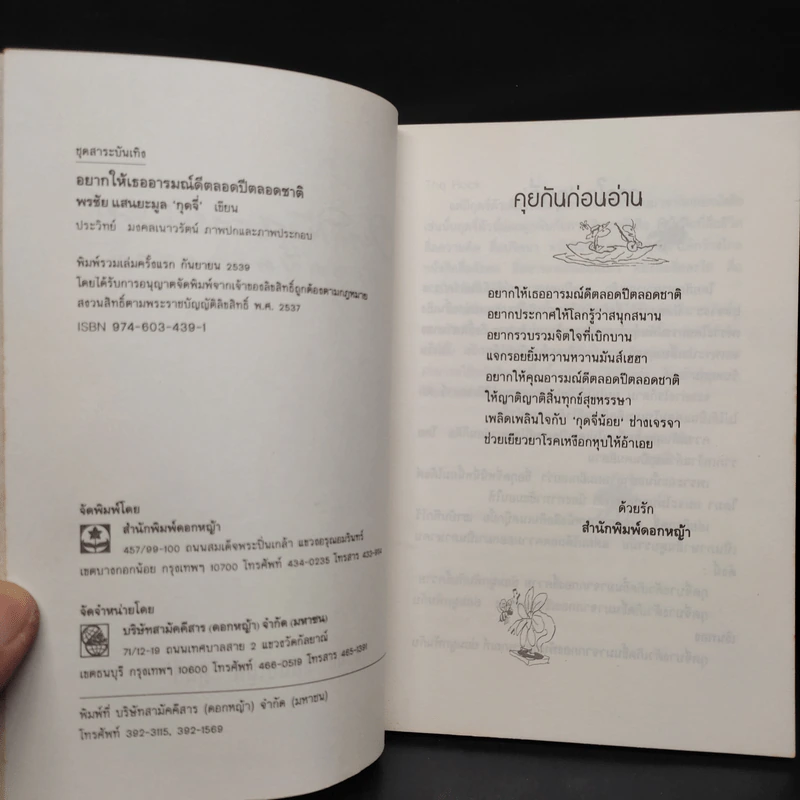 ชุดสาระบันเทิง
อยากให้เธออารมณ์ดีตลอดปีตลอดชาติ
พรชัย แสนยะมูล 'กุดจี่' เขียน
ประวิทย์ มงคลเนาวรัตน์ ภาพปกและภาพประกอบ
พิมพ์รวมเล่มครั้งแรก กันยายน 2539
โดยได้รับการอนุญาตจัดพิมพ์จากเจ้าของลิขสิทธิ์ถูกต้องตามกฎหมาย
สงวนสิทธิ์ตามพระราชบัญญัติลิขสิทธิ์ พ.ศ. 2537
ISBN 974-603-439-1
จัดพิมพ์โดย
สำนักพิมพ์ดอกหญ้า
457/99-100 ถนนสมเด็จพระปิ่นเกล้า แขวงอรุณอมรินทร์
เขตบางกอกน้อย กรุงเทพฯ 10700 โทรศัพท์ 434-0235 โทรสาร
จัดจำหน่ายโดย
บริษัทสามัคคีสาร (ดอกหญ้า) จำกัด (มหาชน)
71/12-19 ถนนเทศบาลสาย 2 แขวงวัดกัลยาณ์
เขตธนบุรี กรุงเทพฯ 10600 โทรศัพท์ 466-0519 โทรสาร
พิมพ์ที่ บริษัทสามัคคีสาร (ดอกหญ้า) จำกัด (มหาชน)
โทรศัพท์ 392-3115, 392-1569
คุยกันก่อนอ่าน
อยากให้เธออารมณ์ดีตลอดปีตลอดชาติ
อยากประกาศให้โลกรู้ว่าสนุกสนาน
อยากรวบรวมจิตใจที่เบิกบาน
แจกรอยยิ้มหวานหวานมันส์เฮฮา
อยากให้คุณอารมณ์ดีตลอดปีตลอดชาติ
ให้ญาติญาติสิ้นทุกข์สุขหรรษา
เพลิดเพลินใจกับ 'กุดจี่น้อย' ช่างเจรจา
ช่วยเยียวยาโรคเหงือกหุบให้อ้าเอย
ด้วยรัก
สำนักพิมพ์ดอกหญ้า